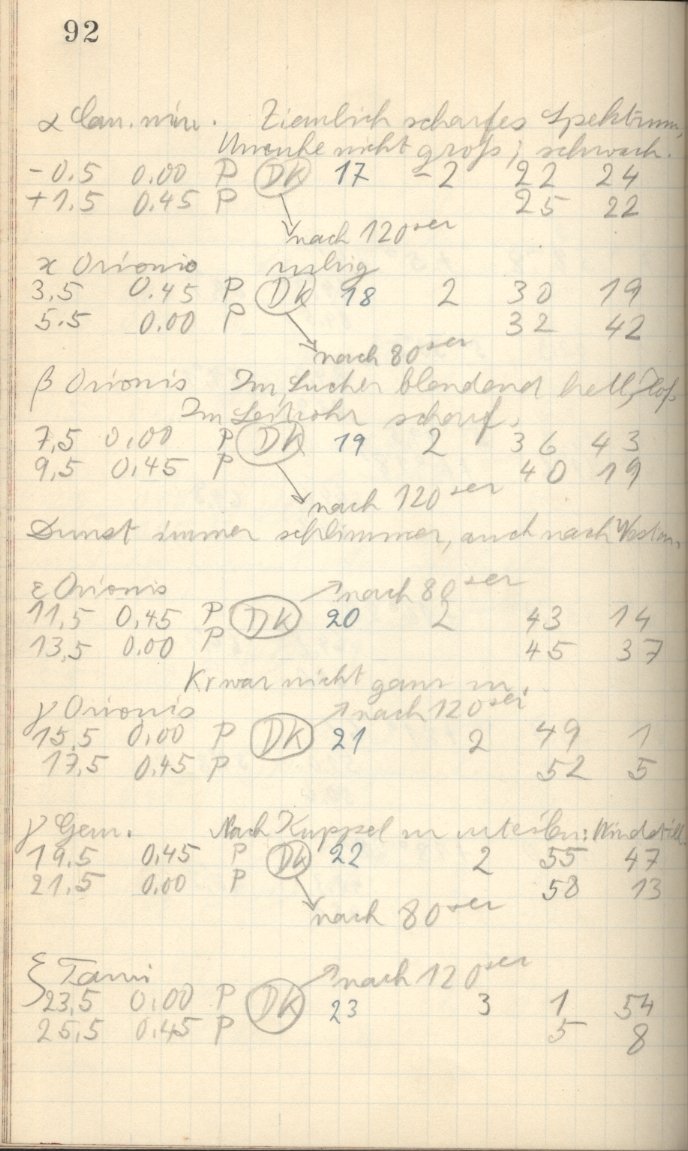 92
α Can. min. Ziemlich scharfes Spektrum,
Unruhe nicht groß; schwach.
-0.5 0.00 P DK 17 -2 22 24
+1.5 0.45 P 25 22
nach 120ser
κ Orionis ruhig
3,5 0.45 P DK 18 2 30 19
5.5 0.00 P 32 42
nach 80ser
β Orionis Im Sucher blendend hell,
Im Leitrohr scharf.
7,5 0,00 P DK 19 2 36 43
9,5 0,45 P 40 19
nach 120ser
Dunst immer schlimmer, auch nach
ε Orionis nach 80ser
11,5 0,45 P DK 20 2 43 14
13,5 0.00 P 45 37
Kr war nicht ganz zu.
γ Orionis nach 120ser
15,5 0,00 P DK 21 2 49 1
17,5 0,45 P 52 5
γ Gem. Nach Kuppel zu urteilen: Windstill.
19,5 0,45 P DK 22 2 55 47
21,5 0,00 P 58 13
nach 80ser
ξ Tauri nach 120ser
23,5 0,00 P DK 23 3 1 54
25,5 0,45 P 5 8